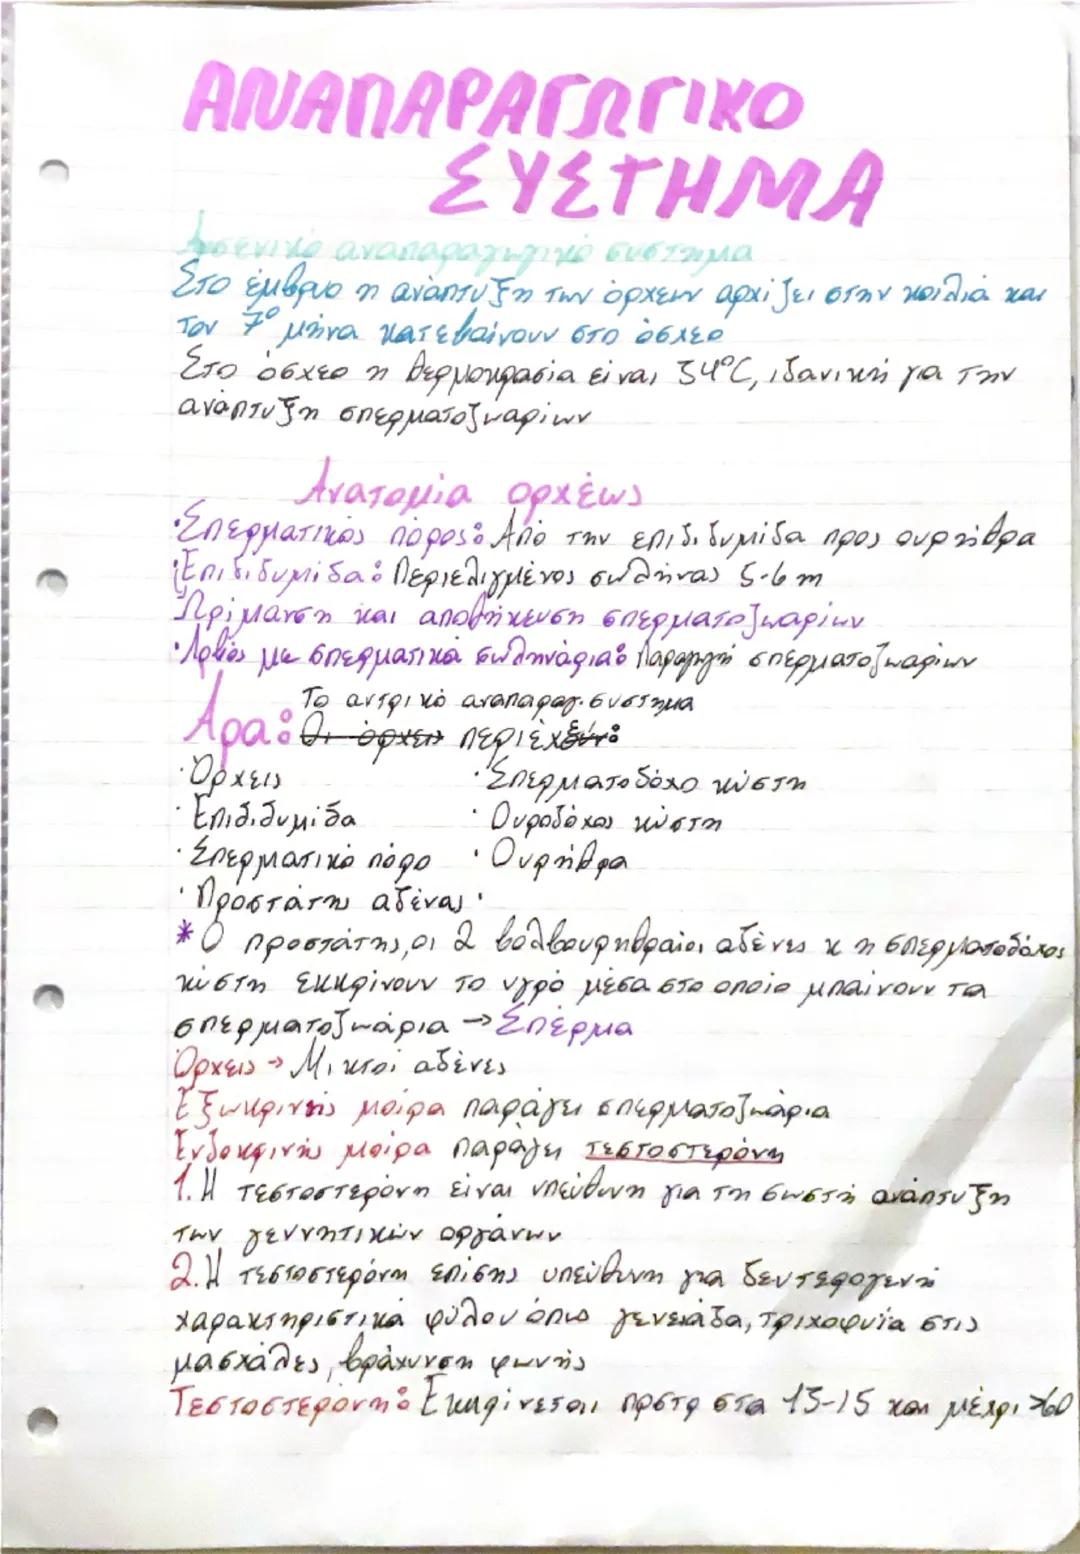 ΑΝΑΠΑΡΑΓΩΓΙΚΟ
ΣΥΣΤΗΜΑ
Αρσενικό αναπαραγωγικό σύστημα
Στο έμβρυο η ανάπτυξη των όρχεων αρχίζει στην κοιλιά και
τον 7° μήνα κατεβαίνουν στο όσχεο
Στο όσχεο η θερμοκρασία είναι 34°C, ιδανική για την
ανάπτυξη σπερματοζωαρίων
Ανατομία όρχέως
·Σπερματικός πόρος: Από την επιδιδυμίδα προς ουρήθρα
·Επιδιδυμίδα: Περιελιγμένος σωλήνας 5-6 m
Ωρίμανση και αποθήκευση σπερματοζωαρίων
·Λοβός με σπερματικά σωληνάρια: Παραγωγή σπερματοζωαρίων
Το αντρικό αναπαραγ. σύστημα
Άρα: Οι όρχεις περιέχουν:
·Όρχεις ·Σπερματοδόχο κύστη
·Επιδιδυμίδα ·Ουροδόχος κύστη
·Σπερματικό πόρο ·Ουρήθρα
·Προστάτης αδένας ·
*Ο προστάτης, οι 2 βολβουρηθραίοι αδένες κ η σπερματοδόχος
κύστη εκκρίνουν το υγρό μέσα στο οποίο μπαίνουν τα
σπερματοζωάρια → Σπέρμα
Όρχεις → Μικτοί αδένες
Εξωκρινής μοίρα παράγει σπερματοζωάρια
Ενδοκρινής μοίρα παράγει τεστοστερόνη
1. Η τεστοστερόνη είναι υπεύθυνη για τη σωστή ανάπτυξη
των γεννητικών οργάνων
2. Η τεστοστερόνη επίσης υπεύθυνη για δευτερογενή
χαρακτηριστικά φύλου όπως γενειάδα, τριχοφυία στις
μασχάλες, βράχυνση φωνής
Τεστοστερόνη: Εκκρίνεται στα 13-15 και μέχρι >60